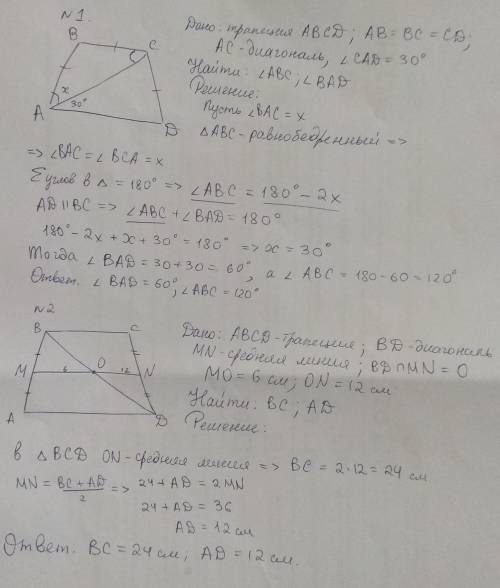 N1.
B
C
A
D
x
30°
Дано: трапеция ABCD; AB = BC = CD;
AC-диагональ, ∠CAD = 30°
Найти: ∠ABC; ∠BAD
Решение:
Пусть ∠BAC = x
△ABC - равнобедренный =>
=> ∠BAC = ∠BCA = x
Σ углов в △ = 180° => ∠ABC = 180° - 2x
AD || BC => ∠ABC + ∠BAD = 180°
180° - 2x + x + 30° = 180° => x = 30°
Тогда ∠BAD = 30 + 30 = 60°, а ∠ABC = 180 - 60 = 120°
Ответ. ∠BAD = 60°; ∠ABC = 120°
N2
B
C
M
6
O
12
N
A
D
Дано: ABCD - трапеция; BD - диагональ
MN - средняя линия; BD ∩ MN = O
MO = 6 см; ON = 12 см
Найти: BC; AD
Решение:
В △BCD ON - средняя линия => BC = 2·12 = 24 см
MN = (BC + AD)/2 => 24 + AD = 2MN
24 + AD = 36
AD = 12 см
Ответ. BC = 24 см; AD = 12 см.